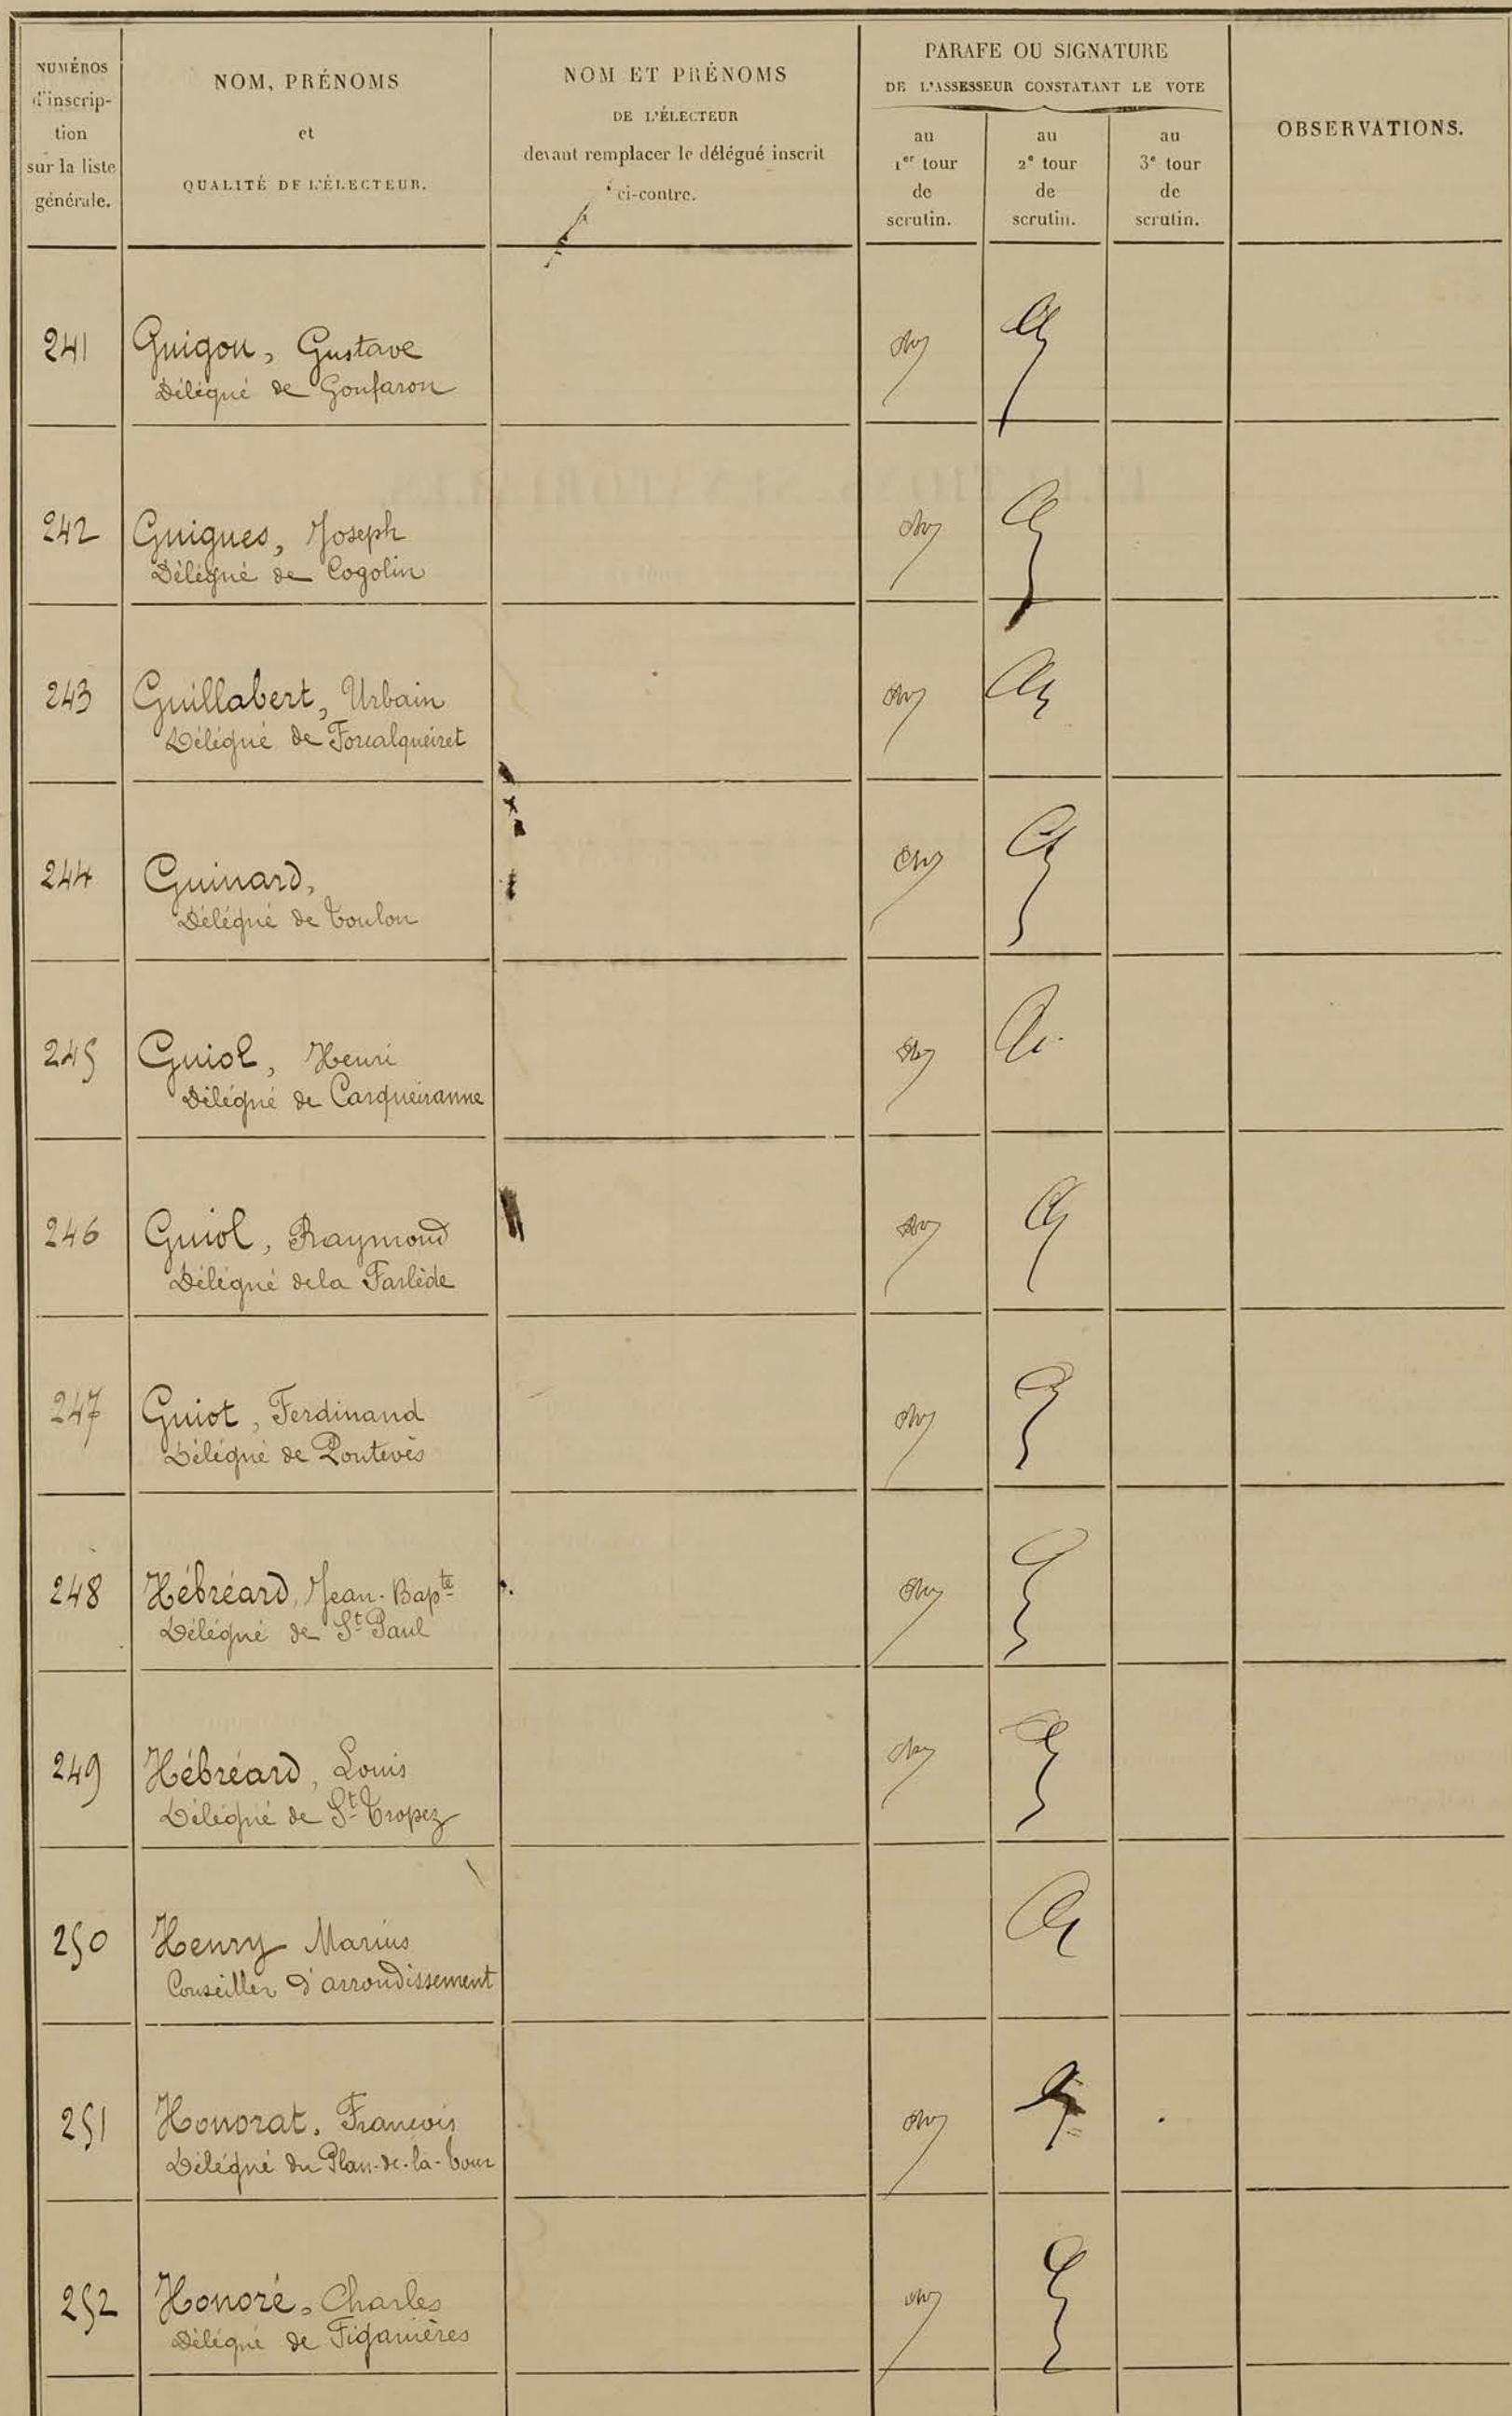 NUMÉROS
d'inscrip-
tion
sur la liste
générale.
NOM, PRÉNOMS
et
QUALITÉ DE L'ÉLECTEUR.
NOM ET PRÉNOMS
DE L'ÉLECTEUR
devant remplacer le délégué inscrit
ci-contre.
PARAFE OU SIGNATURE
DE L'ASSESSEUR CONSTATANT LE VOTE
au
1er tour
de
scrutin.
au
2e tour
de
scrutin.
au
3e tour
de
scrutin.
OBSERVATIONS.
241 Guigou, Gustave
Délégué de Gonfaron
242 Guigues, Joseph
Délégué de Cogolin
243 Guillabert, Urbain
Délégué de Forcalqueiret
244 Guinard,
Délégué de Toulon
245 Guiol, Henri
Délégué de Carqueiranne
246 Guiol, Raymond
Délégué de la Farlède
247 Guiot, Ferdinand
Délégué de Pontevès
248 Hébréard, Jean-Bapte
Délégué de St Paul
249 Hébréard, Louis
Délégué de St Tropez
250 Henry Marius
Conseiller d'arrondissement
251 Honorat, François
Délégué du Plan-de-la-Tour
252 Honoré, Charles
Délégué de Figanières